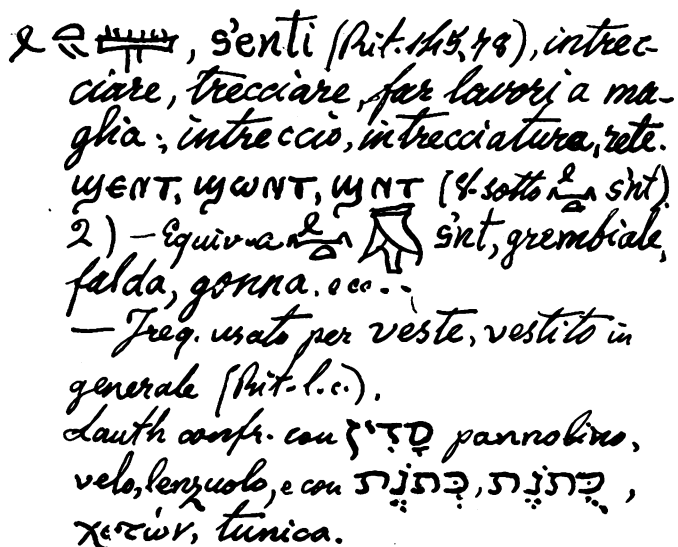 , s'enti (Rit. 145, 78), intrec-
ciare, trecciare, far lavori a ma-
glia; intreccio, intrecciatura, rete.
ϣⲉⲛⲧ, ϣⲱⲛⲧ, ϣⲛⲧ (V. sotto s'nt)
2) – Equiv. a s'nt, grembiale,
falda, gonna, ecc. –
– Freq. usato per veste, vestito in
generale (Rit. l. c.).
Lauth confr. con סָדִין pannolino,
velo, lenzuolo, e con כְּתֹנֶת, כֻּתֹּנֶת,
χιτών, tunica.